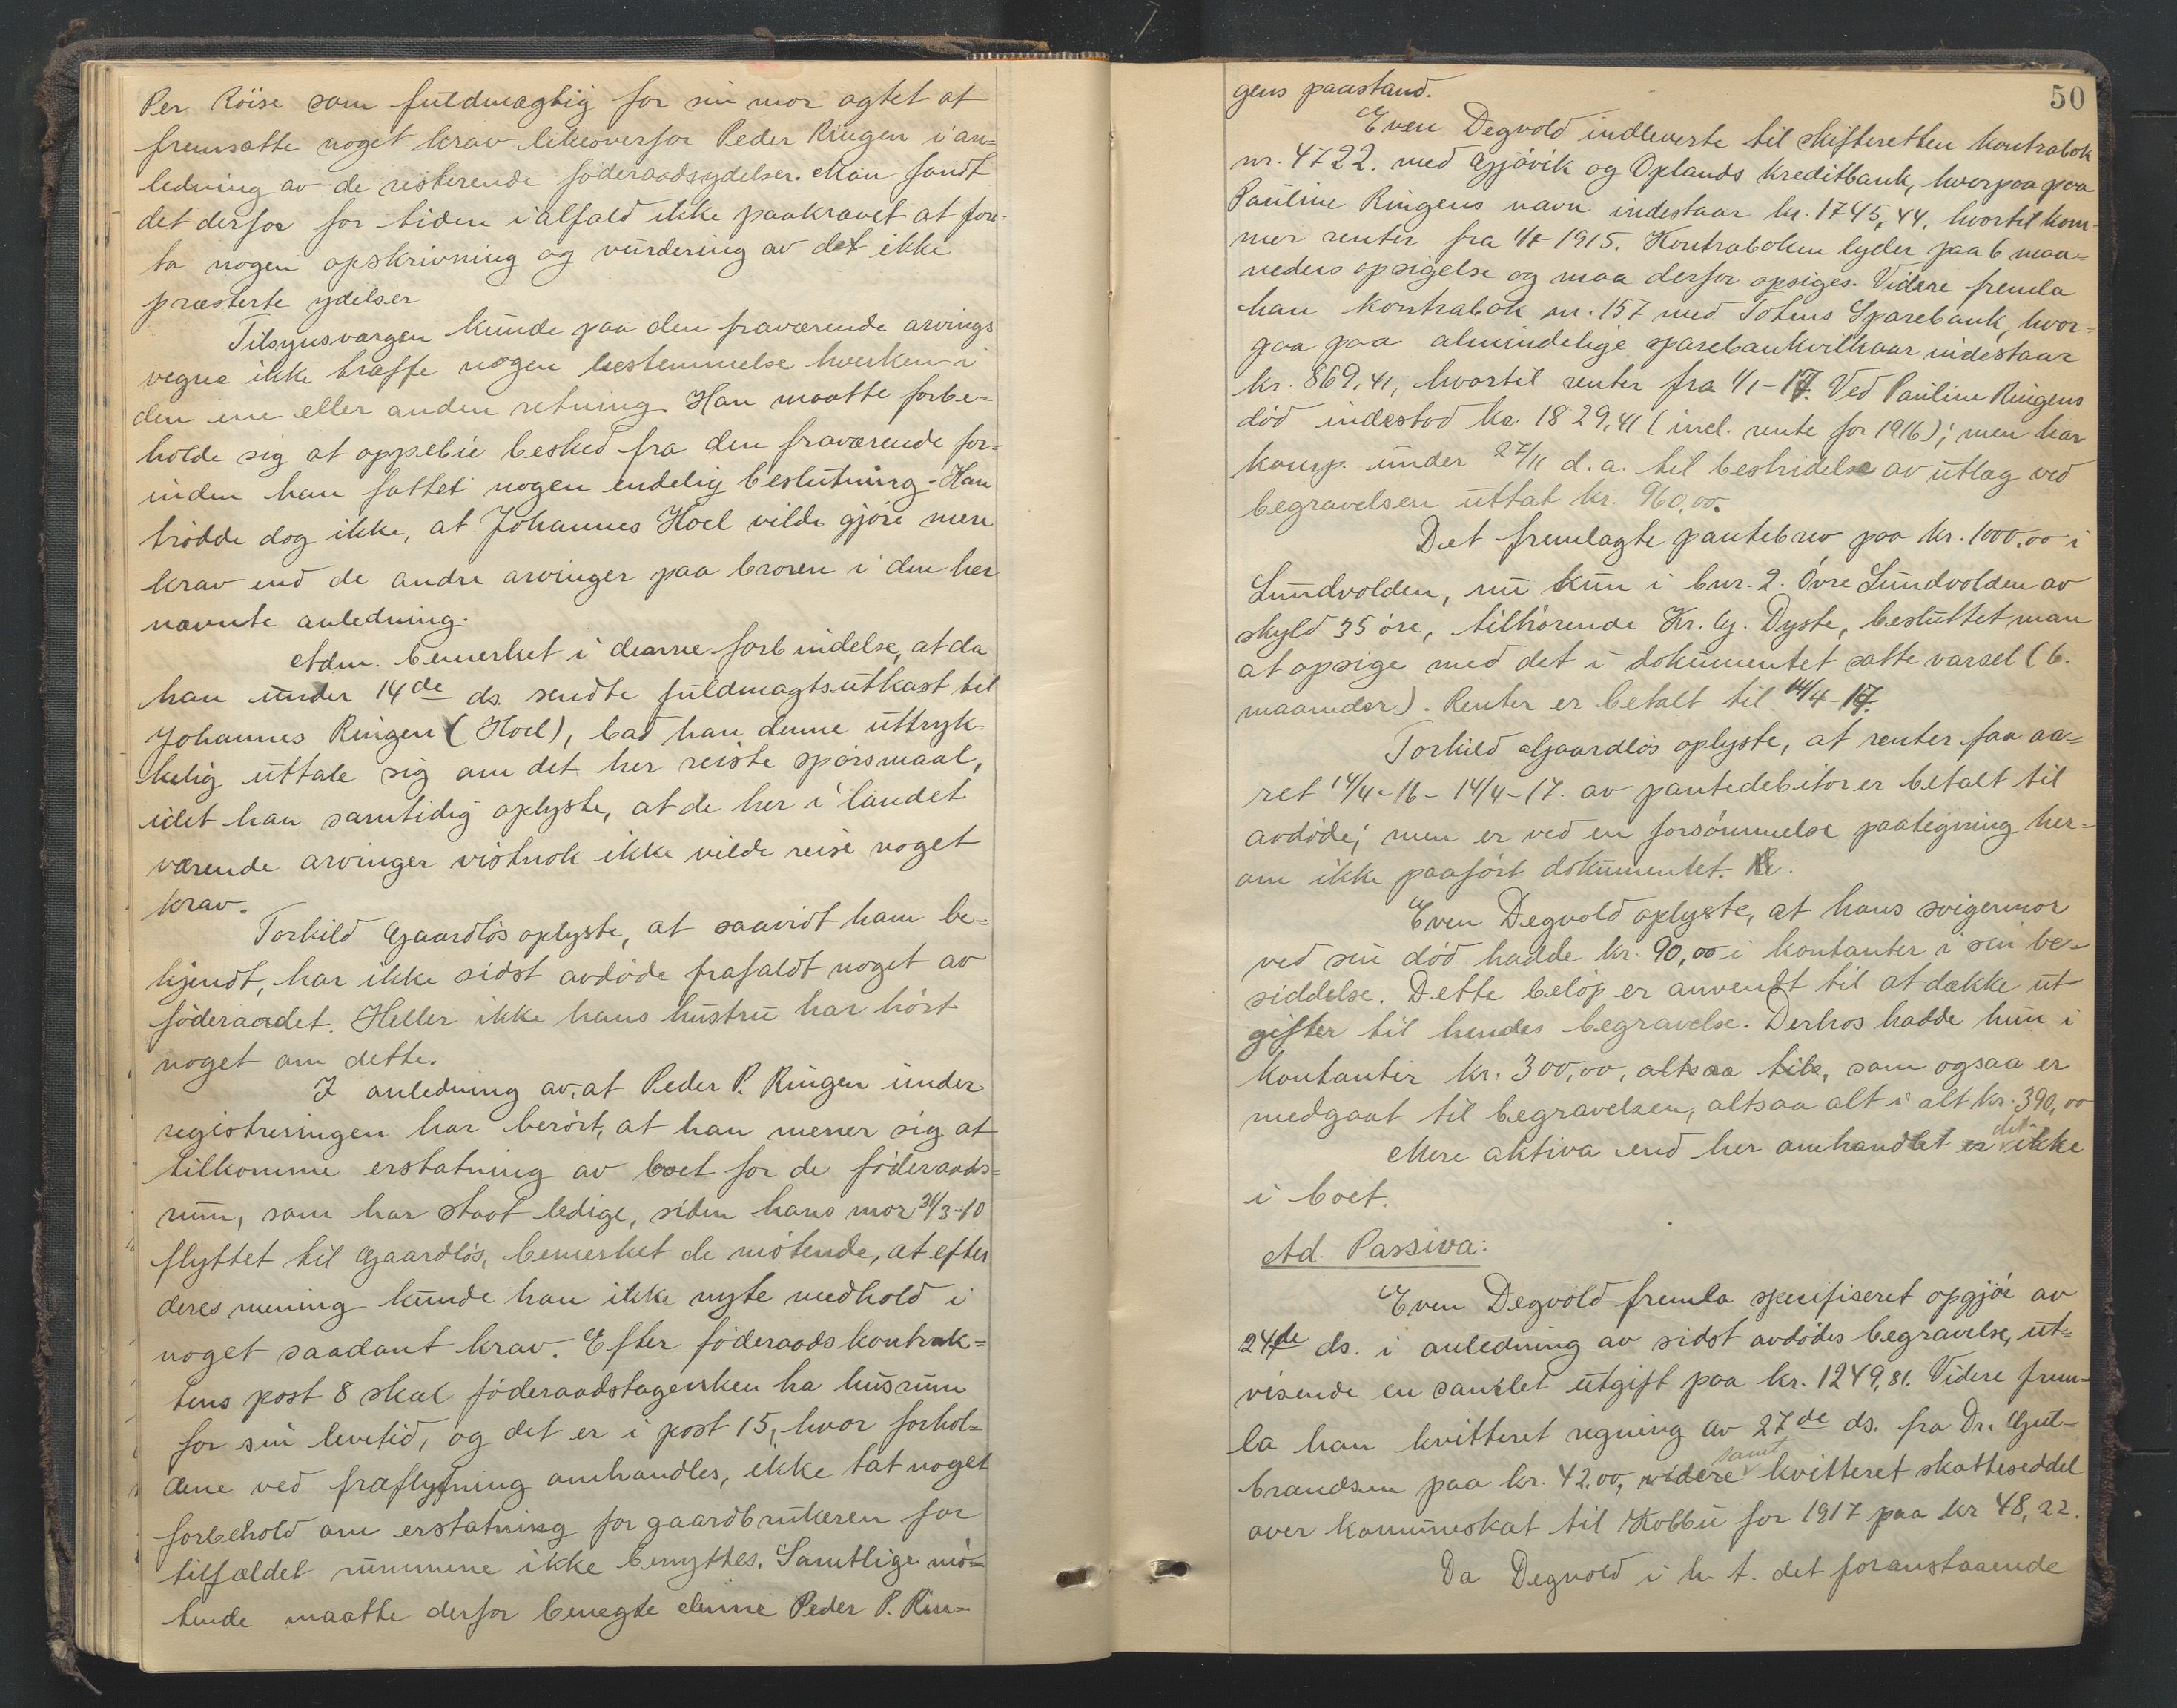 Per Röise som fuldmægtig for sin mor agtet at
fremsætte noget krav likeoverfor Peder Ringen i an-
ledning av de resterende föderaadsydelser. Man fandt
det derfor for tiden ialfald ikke paakrævet at fore-
ta nogen opskrivning og vurdering av det ikke
præsterte ydelser
Tilsynsvergen kunde paa den fraværende arvings
vegne ikke træffe nogen bestemmelse hverken i
den ene eller anden retning. Han maatte forbe-
holde sig at oppebie besked fra den fraværende for-
inden han fattet nogen endelig beslutning. Han
trodde dog ikke, at Johannes Hoel vilde gjöre mere
krav end de andre arvinger paa broren i den her
nævnte anledning.
Adm. bemerket i denne forbindelse, at da
han under 14de ds. sendte fuldmagtsutkast til
Johannes Ringen (Hoel), bad han denne uttryk-
kelig uttale sig om det her reiste spörsmaal,
idet han samtidig oplyste, at de her i landet
værende arvinger vistnok ikke vilde reise noget
krav.
Torkild Gaardlös oplyste, at saavidt ham be-
kjendt, har ikke sidst avdöde frafaldt noget av
föderaadet. Heller ikke hans hustru har hört
noget om dette.
I anledning av, at Peder P. Ringen under
registreringen har berört, at han mener sig at
tilkomme erstatning av boet for de föderaads-
rum, som har staat ledige, siden hans mor 31/3-10
flyttet til Gaardlös, bemerket de mötende, at efter
deres mening kunde han ikke nyte medhold i
noget saadant krav. Efter föderaadskontrak-
tens post 8 skal föderaadstagersken ha husrum
for sin levetid, og det er i post 15, hvor forhol-
dene ved fraflytning omhandles, ikke tat noget
forbehold om erstatning for gaardbrukeren for
tilfældet rummene ikke benyttes. Samtlige mö-
tende maatte derfor benegte denne Peder P. Rin-
50
gens paastand.
Even Degvold indleverte til skifteretten kontrabok
nr. 4722. med Gjövik og Oplands Kreditbank, hvorpaa paa
Pauline Ringens navn indestaar kr. 1745,44, hvortil kom-
mer renter fra 1/1-1915. Kontraboken lyder paa 6 maa-
neders opsigelse og maa derfor opsiges. Videre fremla
han kontrabok nr. 157 med Totens Sparebank, hvor-
paa paa almindelige sparebankvilkaar indestaar
kr. 869,41, hvortil renter fra 1/1-17. Ved Pauline Ringens
död indestod kr. 1829,41 (incl. rente for 1916); men har
komp. under 27/11 d.a. til bestridelse av utlæg ved
begravelsen uttat kr. 960,00.
Det fremlagte pantebrev paa kr. 1000,00 i
Lundvolden, nu kun i bnr. 2. Övre Lundvolden av
skyld 35 öre, tilhörende Kr. G. Dyste, besluttet man
at opsige med det i dokumentet satte varsel (6.
maaneder). Renter er betalt til 14/4-17.
Torkild Gaardlös oplyste, at renter faa aa-
ret 14/4-16-14/4-17. av pantedebitor er betalt til
avdöde; men er ved en forsömmelse paategning her-
om ikke paafört dokumentet.
Even Degvold oplyste, at hans svigermor
ved sin död hadde kr. 90,00 i kontanter i sin be-
siddelse. Dette belöp er anvendt til at dække ut-
gifter til hendes begravelse. Derhos hadde hun i
kontanter kr. 300,00, altsaa tils, som ogsaa er
medgaat til begravelsen, altsaa alt i alt kr. 390,00
Mere aktiva end her omhandlet er det ikke
i boet.
Ad. Passiva:
Even Degvold fremla specifiseret opgjör av
24de ds. i anledning av sidst avdödes begravelse, ut-
visende en samlet utgift paa kr. 1249,81. Videre frem-
la han kvitteret regning av 27de ds. fra Dr. Gul-
brandsen paa kr. 42,00, videre samt kvitteret skatteseddel
over kommuneskat til Kolbu for 1917 paa kr 48,22.
Da Degvold i h. t. det foranstaaende